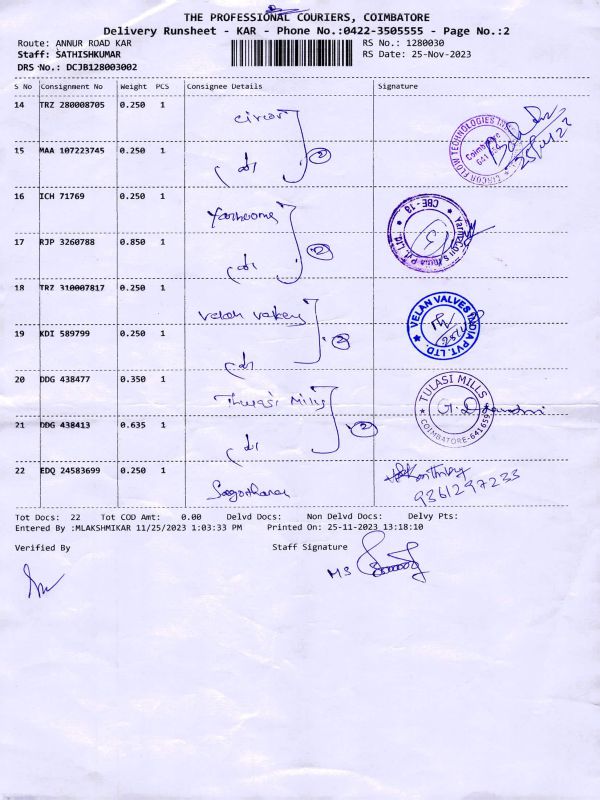 THE PROFESSIONAL COURIERS, COIMBATORE
Delivery Runsheet - KAR - Phone No.:0422-3505555 - Page No.:2
Route: ANNUR ROAD KAR
RS No.: 1280030
Staff: SATHISHKUMAR
RS Date: 25-Nov-2023
DRS No.: DCJB128003002
S No Consignment No Weight PCS Consignee Details Signature
14 TRZ 280008705 0.250 1 circor
CIRCOR FLOW TECHNOLOGIES
Coimbatore
15 MAA 107223745 0.250 1
2
16 ICH 71769 0.250 1
CBE-13
17 RJP 3260788 0.850 1
2
18 TRZ 310007817 0.250 1 velan valves
VELAN VALVES INDIA PVT. LTD.
19 KDI 589799 0.250 1
2
20 DDG 438477 0.350 1 Thulasi Mills
TULASI MILLS
COIMBATORE-641659
21 DDG 438413 0.635 1
2
22 EDQ 24583699 0.250 1
9361297233
Tot Docs: 22 Tot COD Amt: 0.00 Delvd Docs: Non Delvd Docs: Delvy Pts:
Entered By :MLAKSHMIKAR 11/25/2023 1:03:33 PM Printed On: 25-11-2023 13:18:10
Verified By Staff Signature
MS